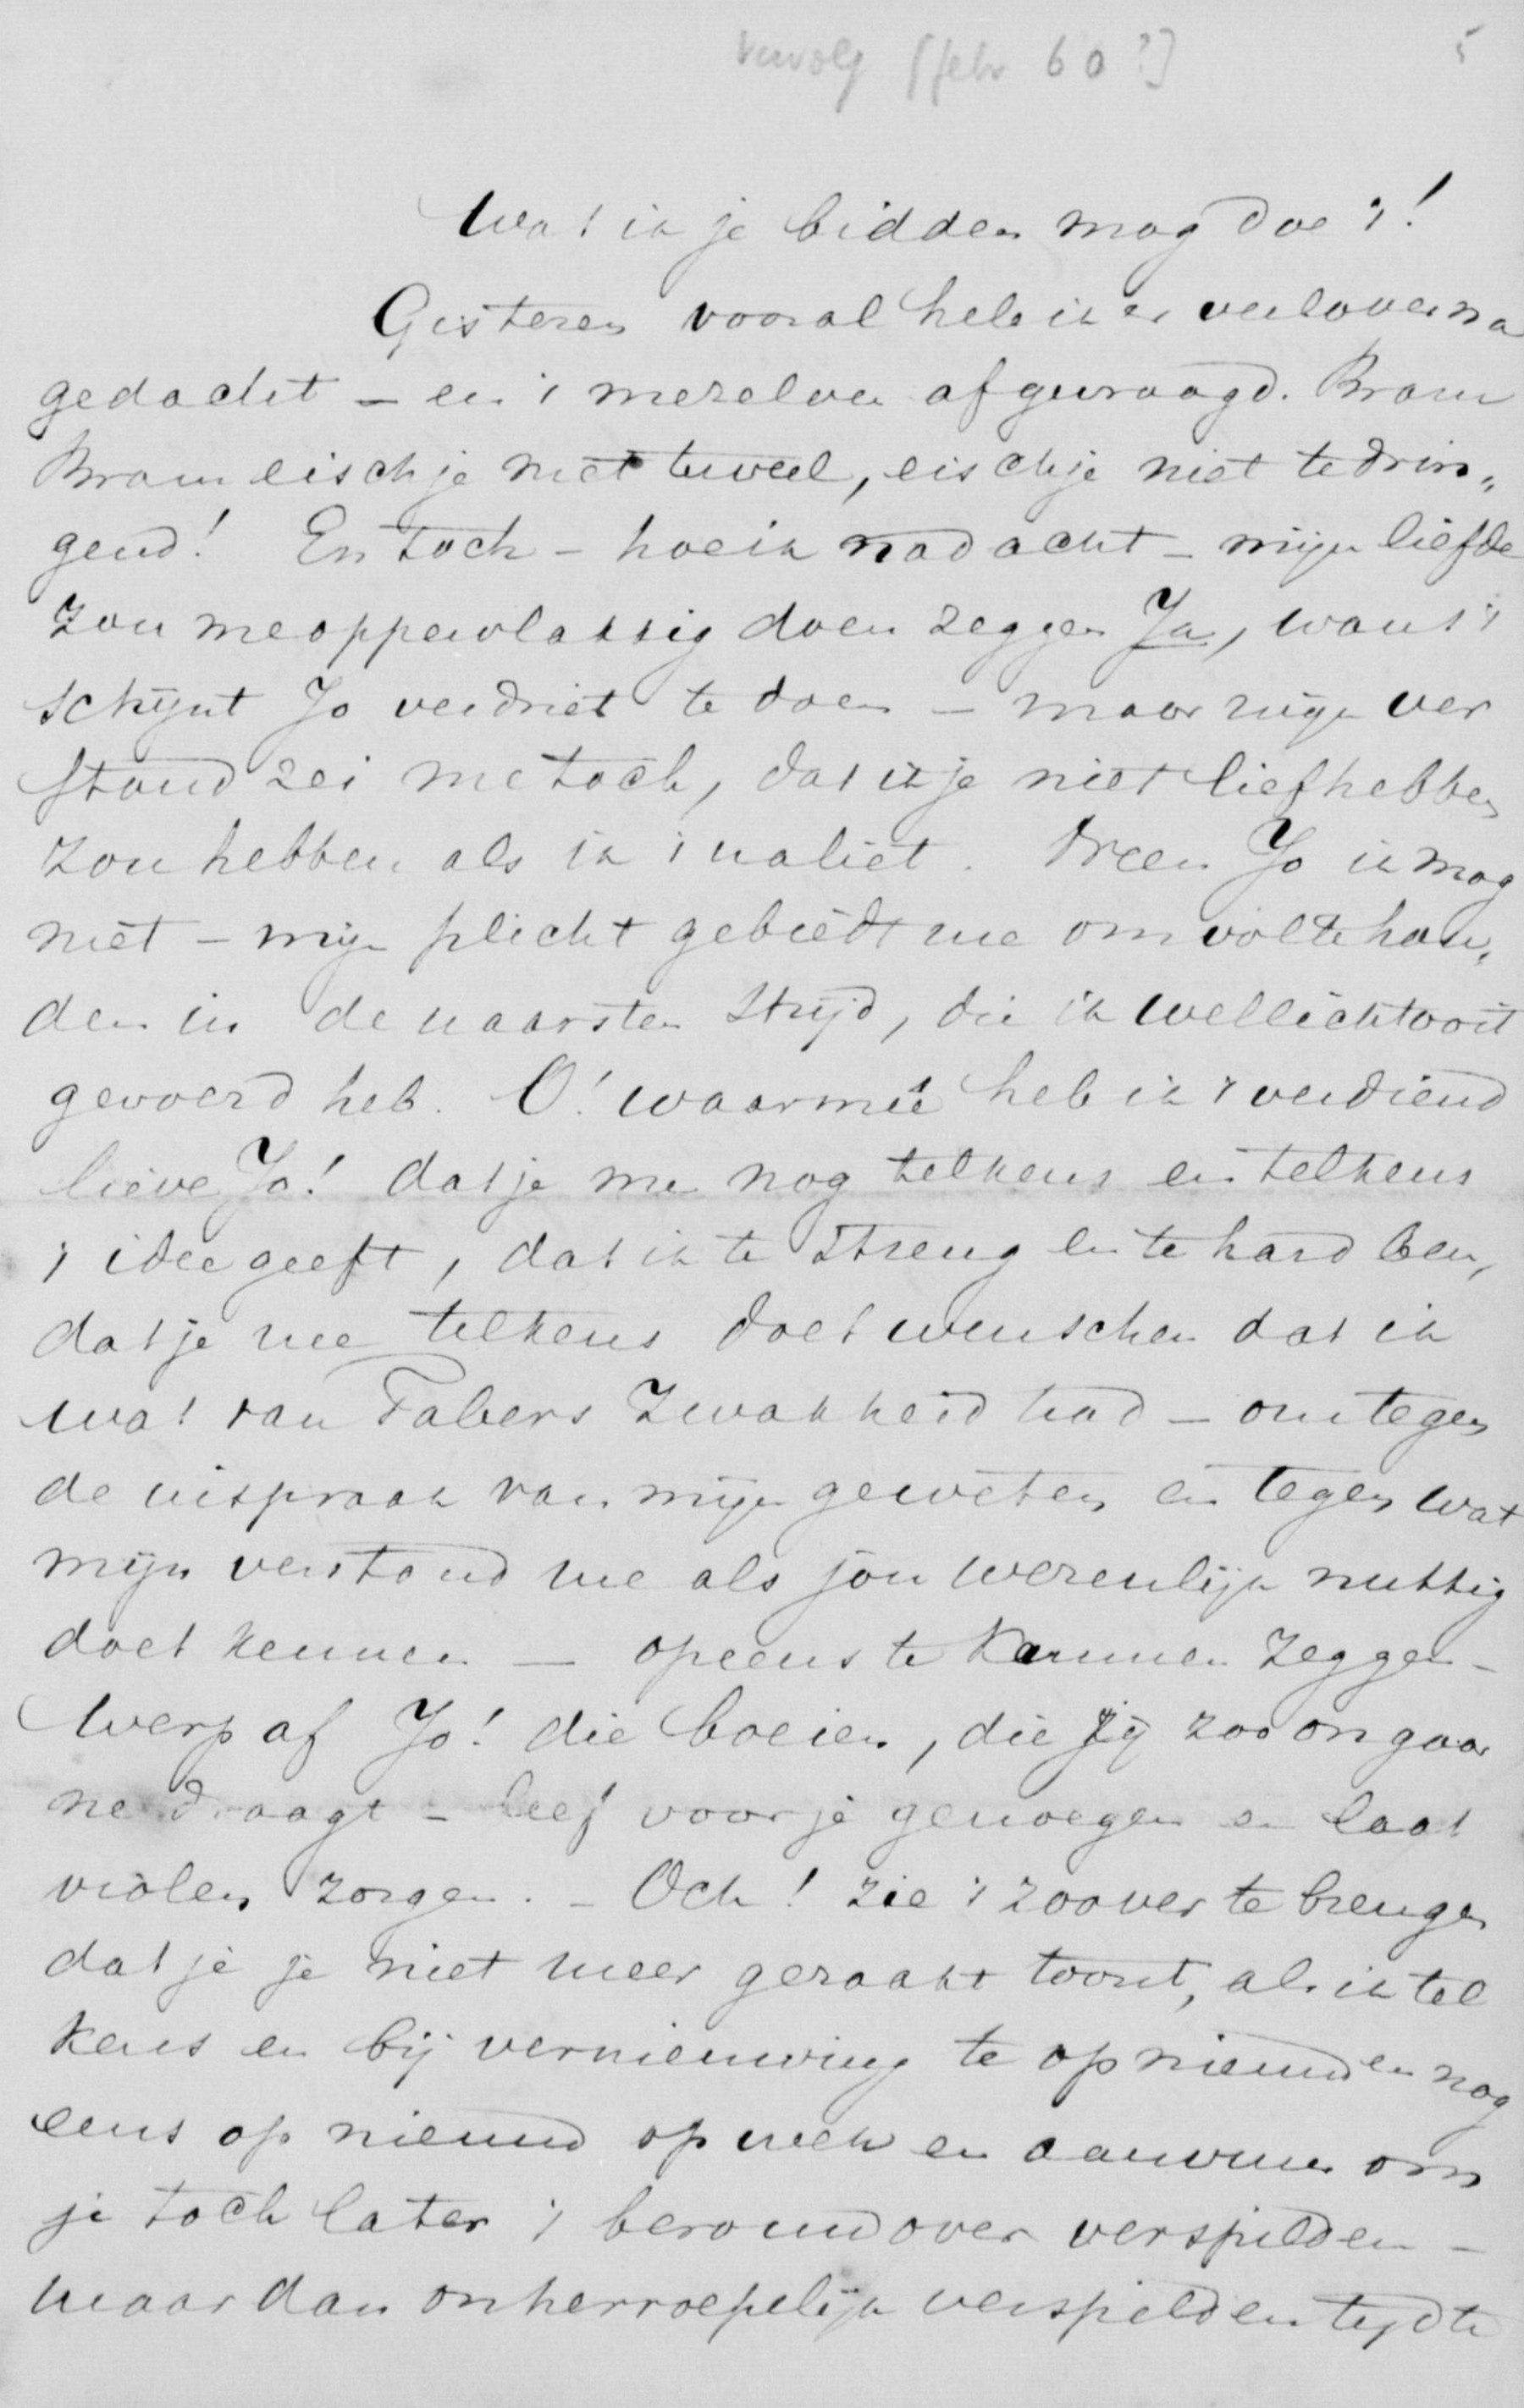 vervolg [febr 60?] 5
Wat ik je bidden mag doe 't!
Gisteren vooral heb ik er veel over na
gedacht – en 't mezelven afgevraagd. Bram
Bram eisch je niet te veel, eisch je niet te drin„
gend! En toch – hoe ik nadacht – mijn liefde
zou me oppervlakkig doen zeggen Ja, want 't
schijnt Jo verdriet te doen – maar mijn ver
stand zei me toch, dat ik je niet lief hebben
zou hebben als ik 't naliet. Neen Jo ik mog
niet – mijn plicht gebiedt me om vol te hou„
den in de naarsten strijd, die ik wellicht ooit
gevoerd heb. O! waarmeê heb ik 't verdiend
lieve Jo! dat je me nog telkens en telkens
't idee geeft, dat ik te streng en te hard ben,
dat je me telkens doet wenschen dat ik
wat van Fabers zwakheid had – om tegen
de uitspraak van mijn geweten en tegen wat
mijn verstand me als jou wezenlijk nuttig
doet kennen — opeens te kunnen zeggen –
Werp af Jo! die boeien, die jij zoo ongaar
ne draagt – leef voor je genoegen en laat
violen zorgen. – Och! zie 't zoover te brengen
dat je je niet meer geraakt toont, als ik tel
kens en bij vernieuwing te op nieuw en nog
eens op nieuw opwek en aanvuur om
je toch later 't berouw over verspilden –
maar dan onherroepelijk verspilden tijd te